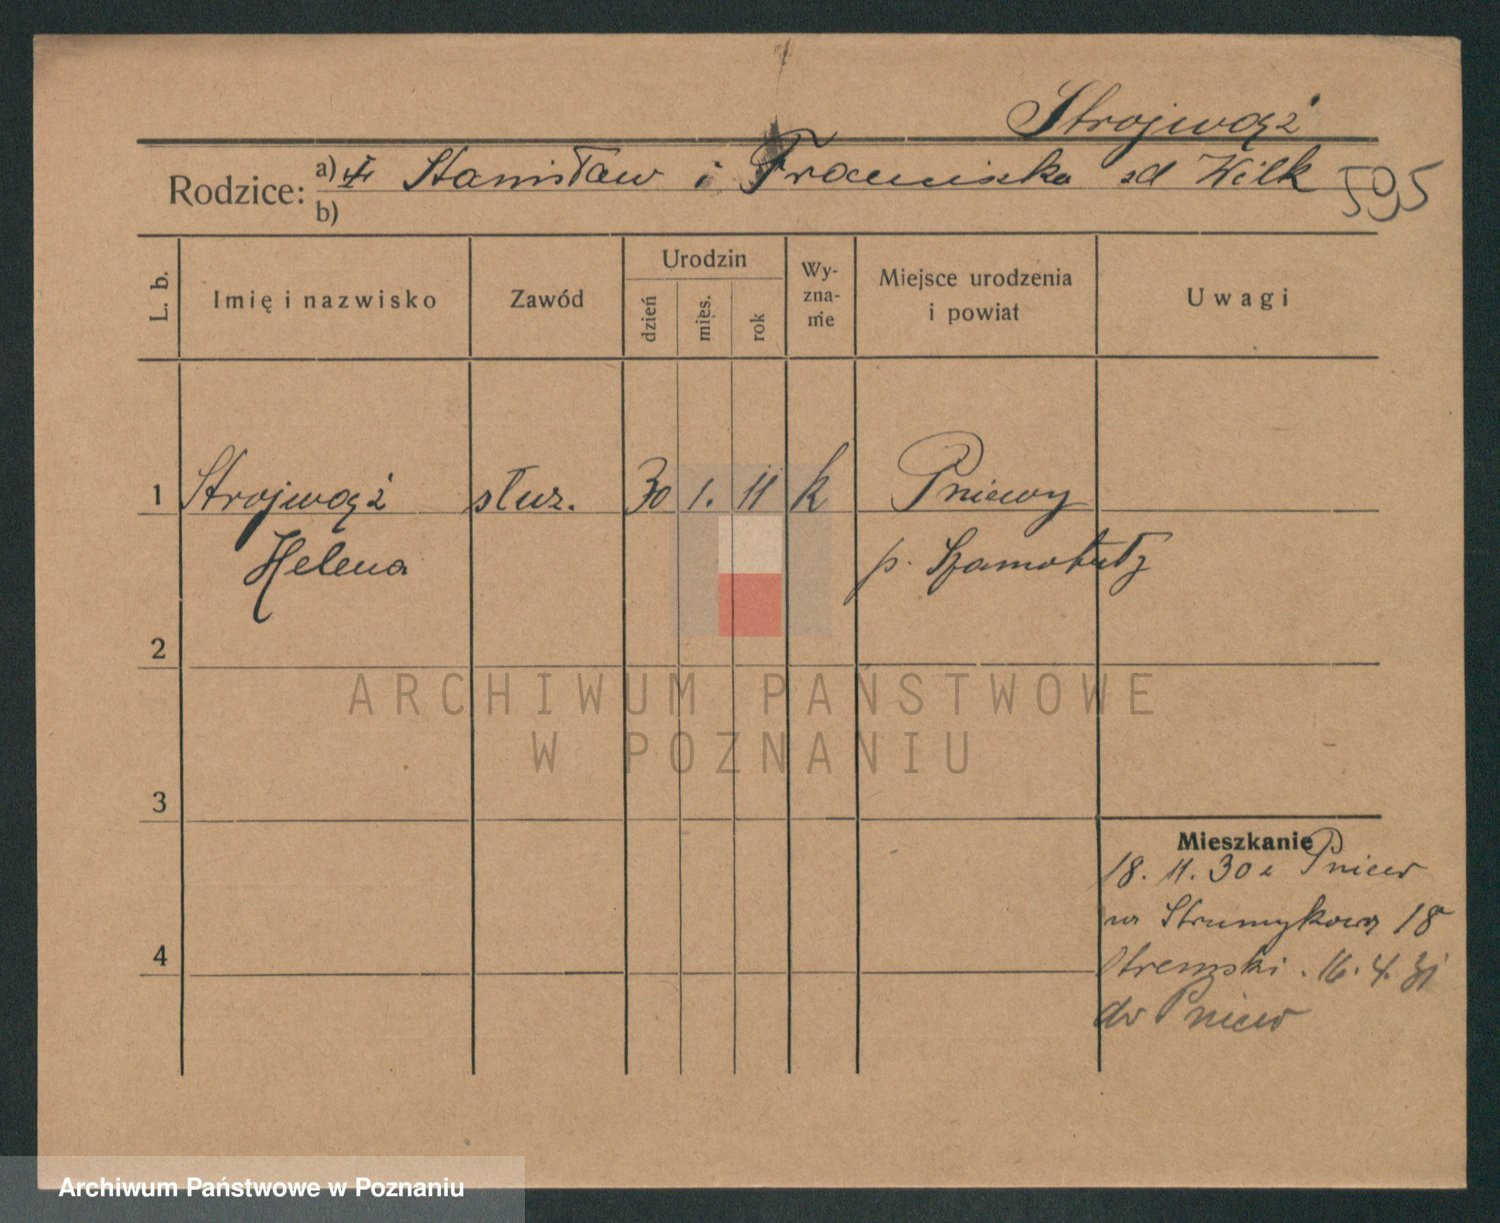 Strojwąż
Rodzice: a) Stanisław i Franciszka sd Wilk 595
b)
L. b. Imię i nazwisko Zawód Urodzin dzień mies. rok Wy-zna-nie Miejsce urodzenia i powiat Uwagi
1 Strojwąż służ. 30 1. 11 k Pniewy
Helena p. Szamotuły
2
ARCHIWUM PAŃSTWOWE
W POZNANIU
3
Mieszkanie
18. 11. 30 z Pniew
Strumykowa 18
4
16. 4. 31
do Pniew
Archiwum Państwowe w Poznaniu